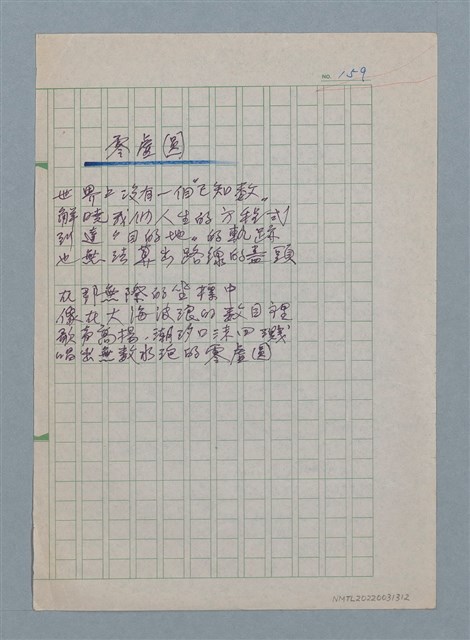 No. 159
零虛圓
世界上沒有一個"已知數"
解曉我們人生的方程式
到達"目的地"的軌跡
也無法算出路線的盡頭
在那無際的坐標中
像在大海波浪的數目裡
歌聲高揚、潮汐口沫四濺
唱出無數水泡的零虛圓
NMTL20220031312